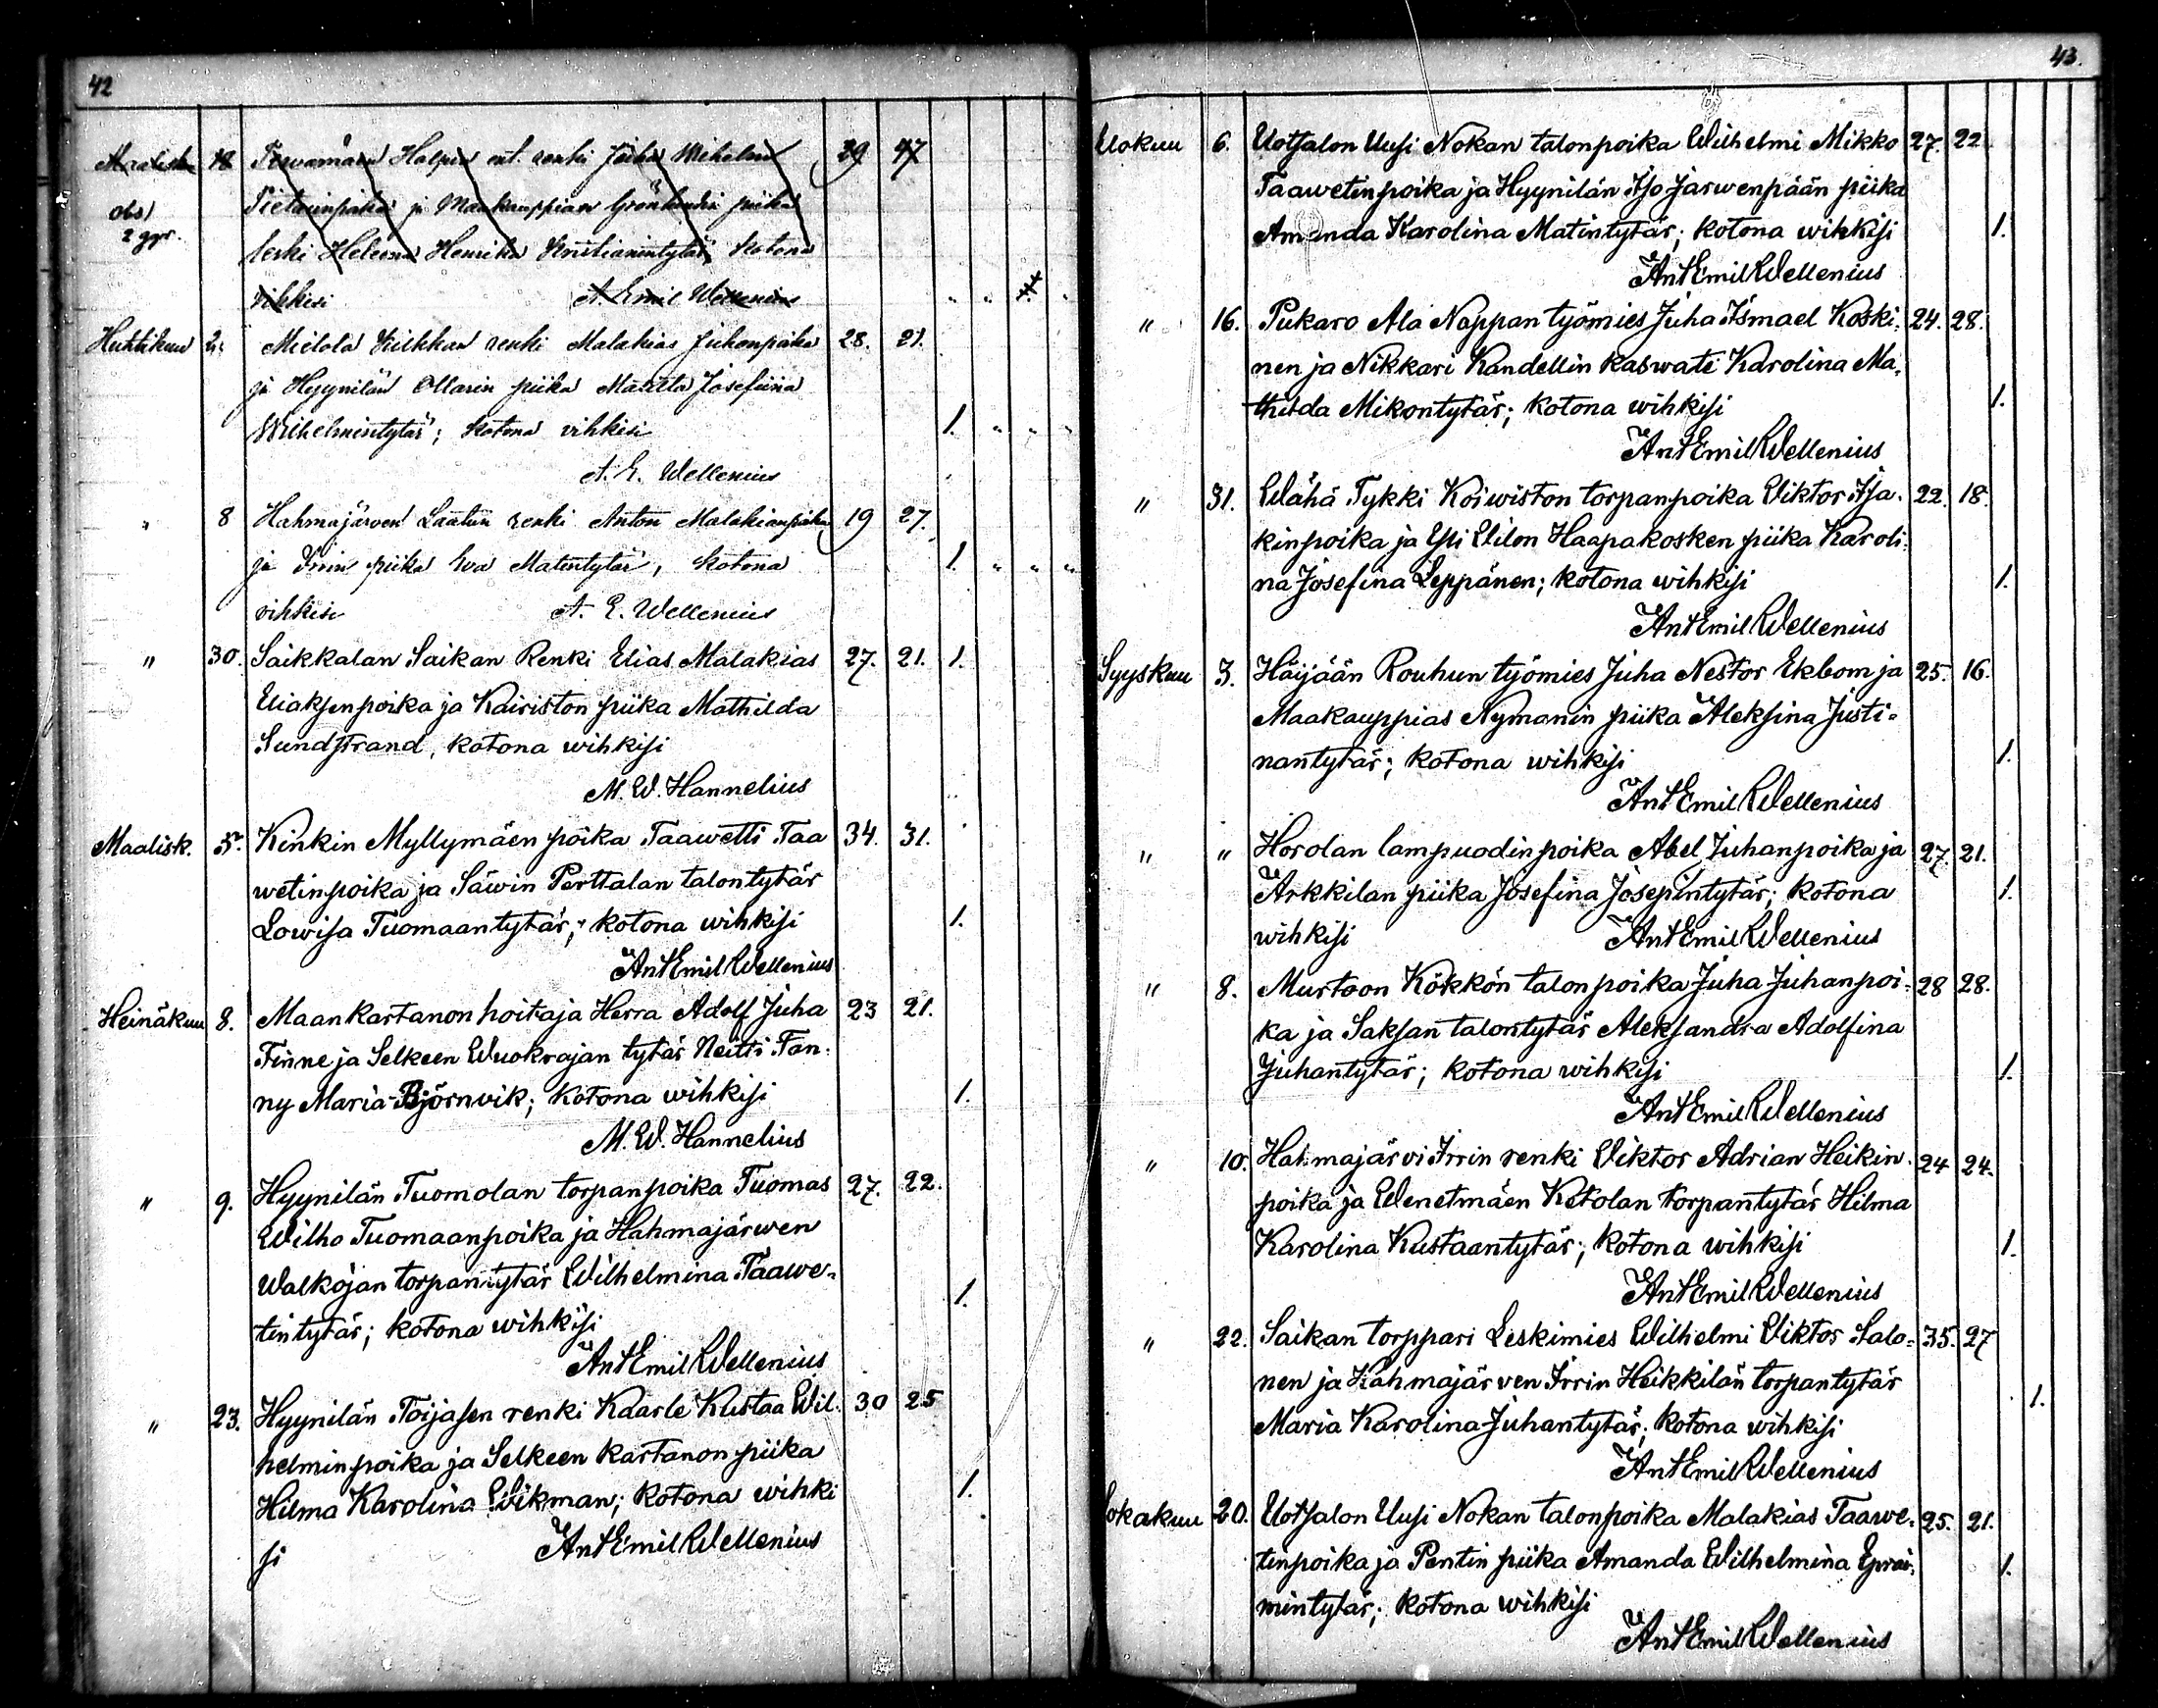 42
Maalisk. 18 Tervamäen Halpin ent. renki Juha Mihelm 29 47
obs! Pietarinpoika ja Maakauppian Grönlundin piika
2 ggr. leski Heleena Henrika Kristianintytär, kotona
vihkisi A. Emil Wellenius
Huhtikuu 2. Mielola Kiilkkan renki Malakias Juhonpoika 28. 21.
ja Hyynilän Ollarin piika Matilta Josefiina
Wilhelmintytär; kotona vihkisi 1.
A. E. Wellenius
" 8 Hahmajärven Laatun renki Anton Malakianpoika 19 27.
ja Irrin piika Eva Matintytär, kotona 1.
vihkisi A. E. Wellenius
" 30. Saikkalan Saikan Renki Elias Malakias 27. 21. 1.
Eliaksenpoika ja Kairiston piika Mathilda
Sundstrand, kotona wihkisi
M. W. Hannelius
Maalisk. 5. Kinkin Myllymäen poika Taawetti Taa 34. 31.
wetinpoika ja Säwin Perttalan talontytär
Lowisa Tuomaantytär; kotona wihkisi 1.
Ant Emil Wellenius
Heinäkuu 8. Maankartanon hoitaja Herra Adolf Juha 23 21.
Finne ja Selkeen Wuokrajan tytär Neitti Fan-
ny Maria Björnvik; kotona wihkisi 1.
M. W. Hannelius
" 9. Hyynilän Tuomolan torpanpoika Tuomas 27. 22.
Wilho Tuomaanpoika ja Hahmajärwen
Walkojan torpantytär Wilhelmina Taawe-
tintytär; kotona wihkisi 1.
Ant Emil Wellenius
" 23. Hyynilän Toijasen renki Kaarle Kustaa Wil- 30 25
helminpoika ja Selkeen kartanon piika
Hilma Karolina Wikman; kotona wihki 1.
si Ant Emil Wellenius
43.
Elokuu 6. Uotsalon Uusi Nokan talonpoika Wilhelmi Mikko 27. 22
Taawetinpoika ja Hyynilän Iso Järwenpään piika
Amanda Karolina Matintytär; kotona wihkisi 1.
Ant Emil Wellenius
" 16. Pukaro Ala Nappan työmies Juha Ismael Koski- 24. 28.
nen ja Nikkari Kandellin kaswati Karolina Ma-
thilda Mikontytär; kotona wihkisi 1.
Ant Emil Wellenius
" 31. Wähä Tykki Koiwiston torpanpoika Viktor Isa- 22. 18.
kinpoika ja Yli Vilon Haapakosken piika Karoli-
na Josefina Leppänen; kotona wihkisi 1.
Ant Emil Wellenius
Syyskuu 3. Häijään Rouhun työmies Juha Nestor Ekbom ja 25. 16.
Maakauppias Nymanin piika Aleksina Justi-
nantytär; kotona wihkisi 1.
Ant Emil Wellenius
" " Horolan lampuodinpoika Abel Juhanpoika ja 27. 21.
Arkkilan piika Josefina Josepintytär; kotona 1.
wihkisi Ant Emil Wellenius
" 8. Murtoon Kökkön talonpoika Juha Juhanpoi- 28 28.
ka ja Saksan talontytär Aleksandra Adolfina
Juhantytär; kotona wihkisi 1.
Ant Emil Wellenius
" 10. Hahmajärvi Irrin renki Viktor Adrian Heikin- 24 24.
poika ja Wenetmäen Ketolan torpantytär Hilma
Karolina Kustaantytär; kotona wihkisi 1.
Ant Emil Wellenius
" 22. Saikan torppari Leskimies Wilhelmi Viktor Salo- 35. 27
nen ja Hahmajärven Irrin Heikkilän torpantytär 1.
Maria Karolina Juhantytär; kotona wihkisi
Ant Emil Wellenius
Lokakuu 20. Uotsalon Uusi Nokan talonpoika Malakias Taawe- 25. 21.
tinpoika ja Pentin piika Amanda Wilhelmina Eprai- 1.
mintytär; kotona wihkisi
Ant Emil Wellenius